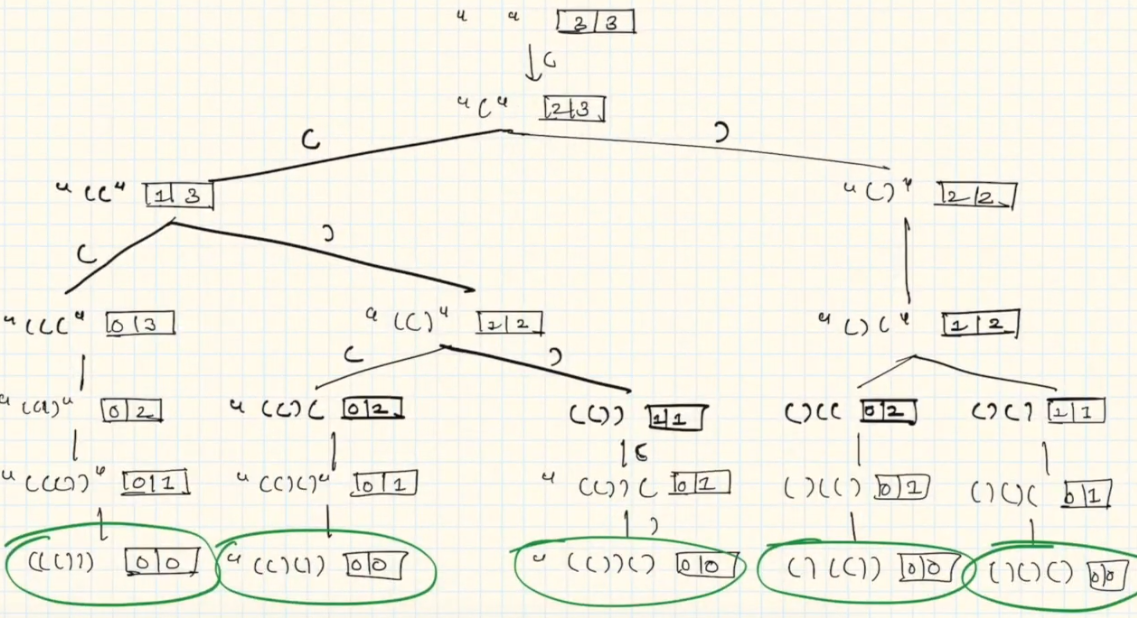 " " 3|3
(
"(" 2|3
( )
"((" 1|3 "()" 2|2
( )
"(((" 0|3 "(()" 1|2 "()(" 1|2
( )
"((()" 0|2 "(()( 0|2 (()) 1|1 ()(( 0|2 ()() 1|1
(
"((())" 0|1 "(()()" 0|1 " (())( 0|1 ()(() 0|1 ()()( 0|1
)
((())) 0|0 "(()()) 0|0 " (())() 0|0 ()(()) 0|0 ()()() 0|0